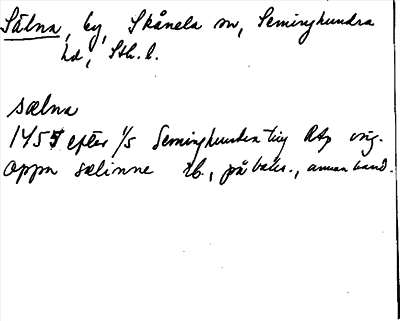 Sälna, by, Skånela sn, Seminghundra
hd, Sth. l.
sælna
1455 efter 1/5 Seminghundra ting RAp orig.
oppa sælinne ib., på baks., annan hand.